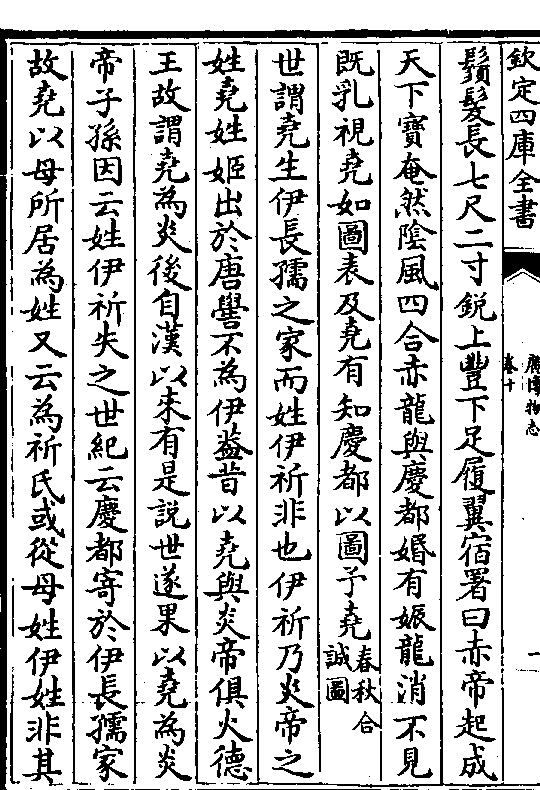 欽定四庫全書
廣博物志
卷十
一
鬚髮長七尺二寸鋭上豐下足履翼宿署曰赤帝起成
天下寶奄然隂風四合赤龍與慶都婚有娠龍消不見
既乳視堯如圖表及堯有知慶都以圖予堯春秋合
誠圖
世謂堯生伊長孺之家而姓伊祈非也伊祈乃炎帝之
姓堯姓姬出於唐嚳不為伊葢昔以堯與炎帝俱火德
王故謂堯為炎後自漢以来有是説世遂果以堯為炎
帝子孫因云姓伊祈失之世紀云慶都寄於伊長孺家
故堯以母所居為姓又云為祈氏或從母姓伊姓非其